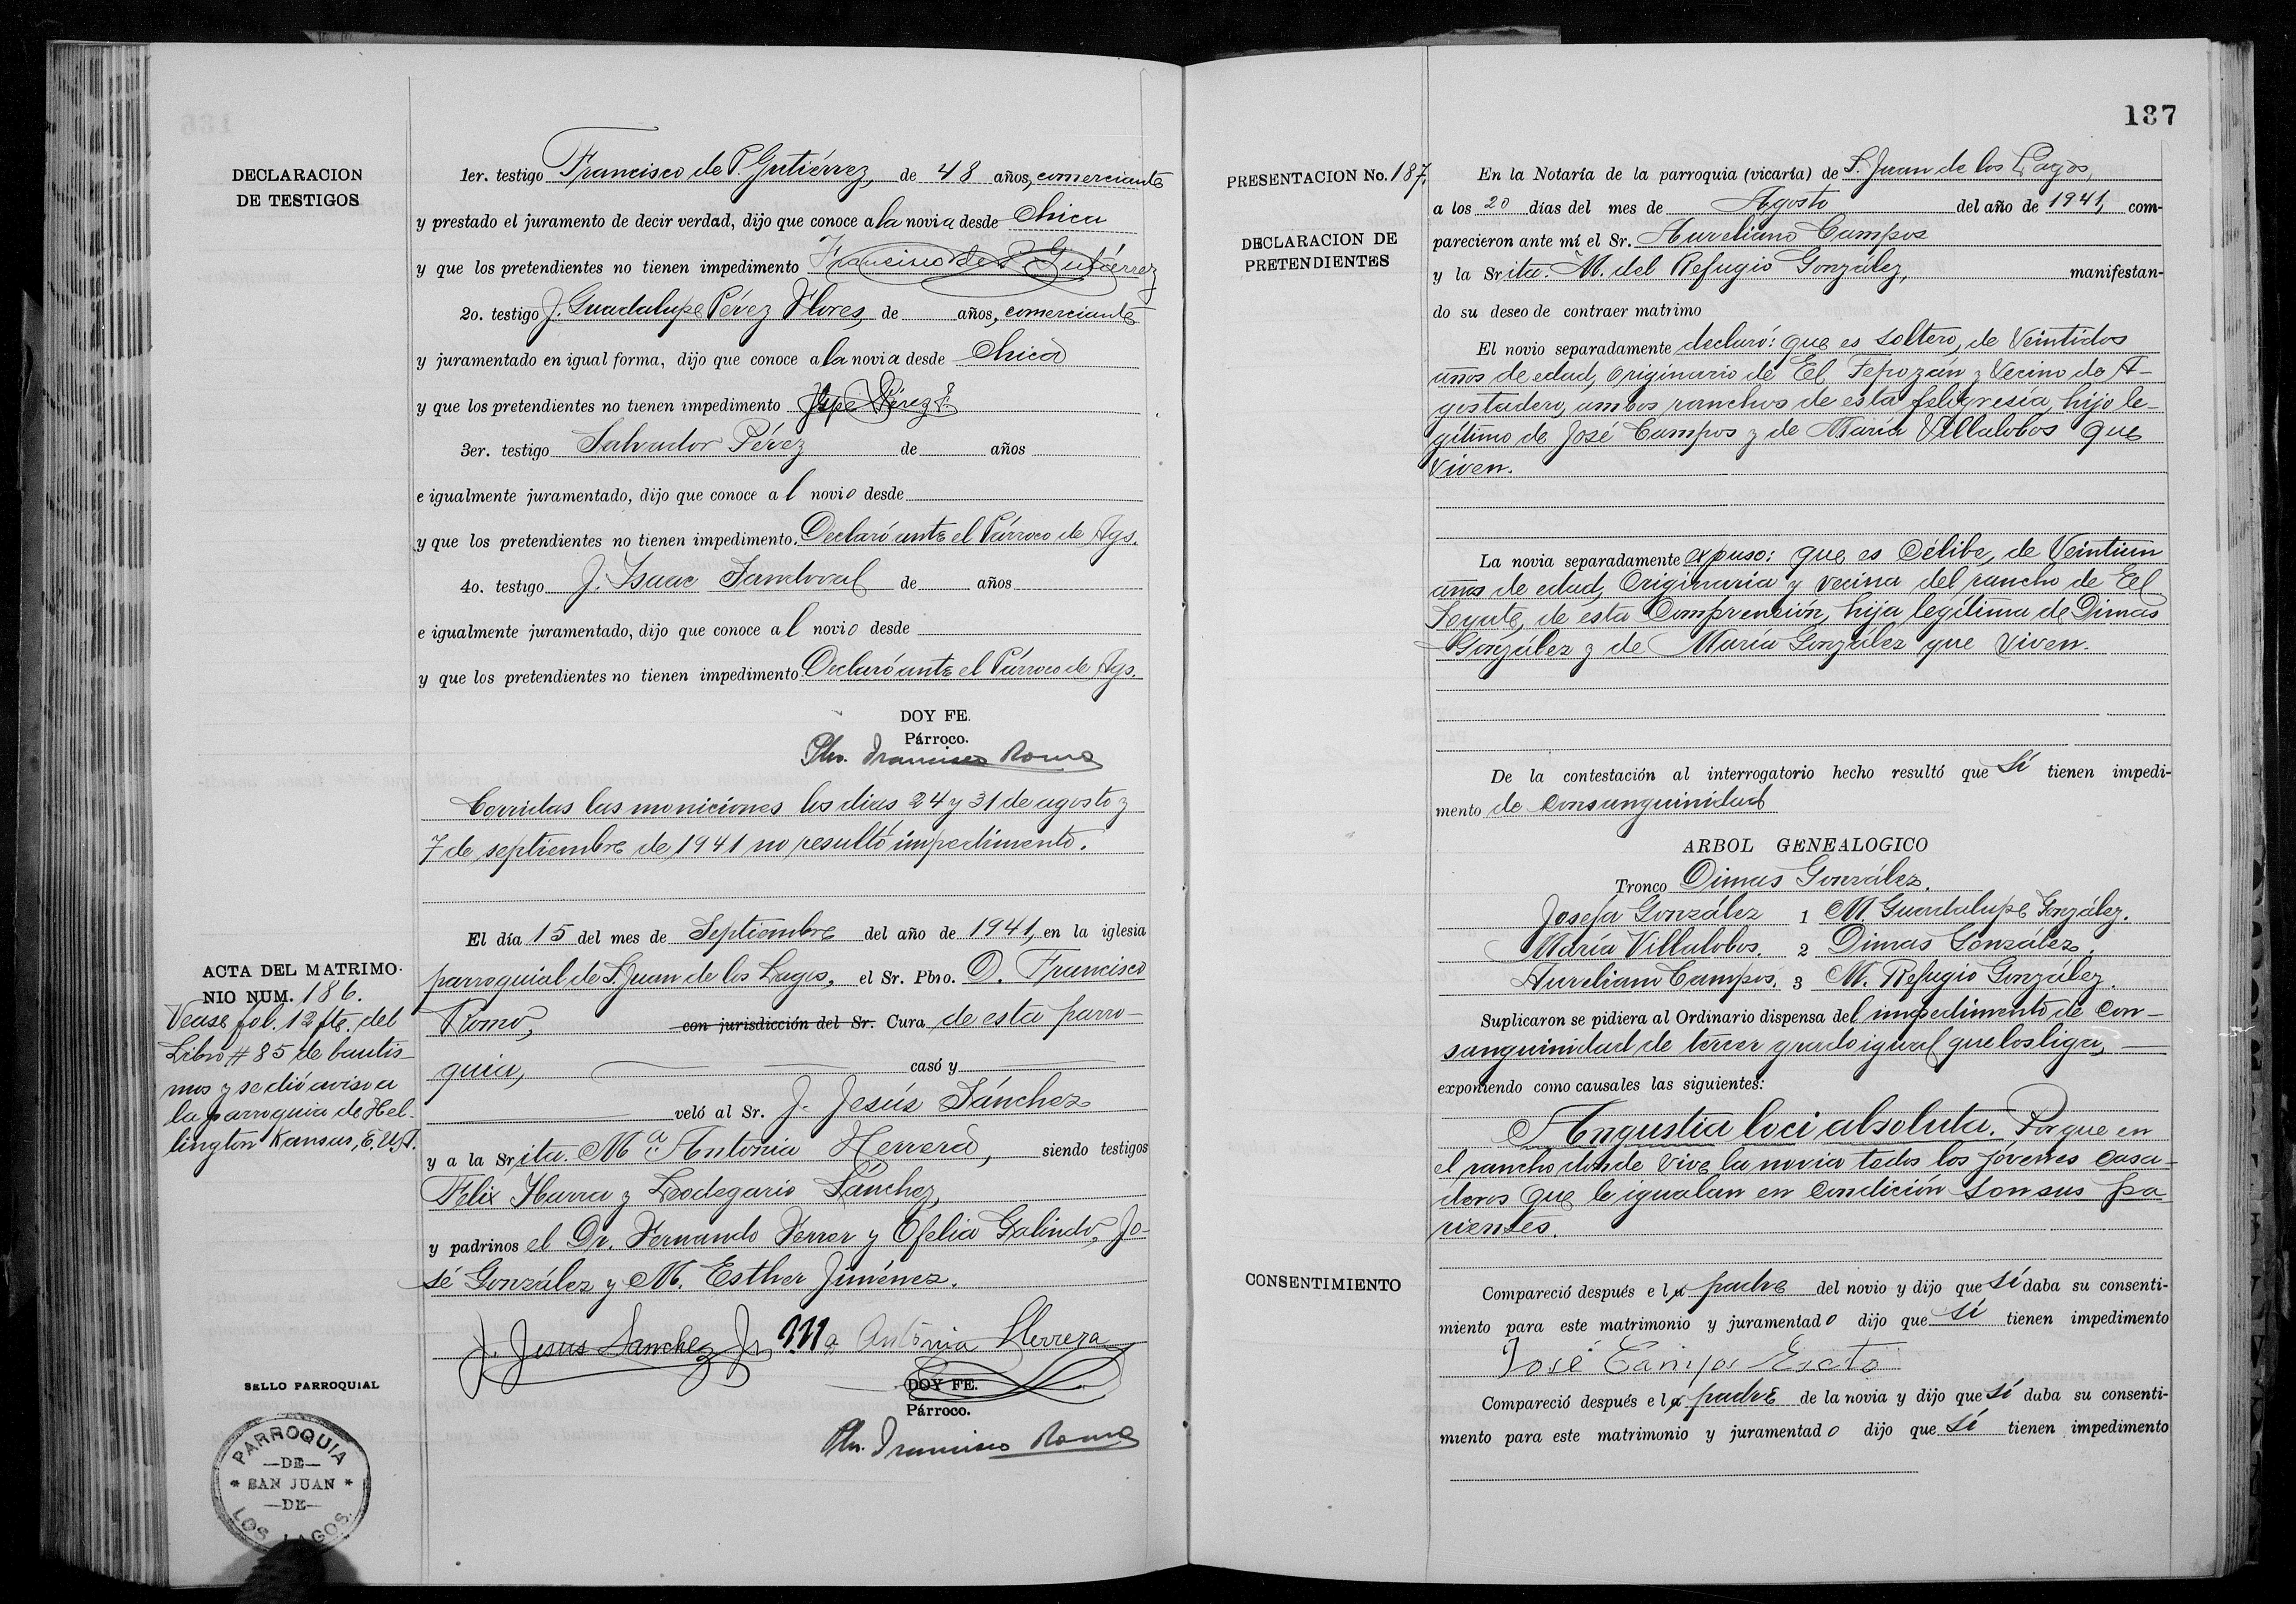 DECLARACION
DE TESTIGOS
1er. testigo Francisco de P. Gutiérrez, de 48 años, comerciante
y prestado el juramento de decir verdad, dijo que conoce a la novia desde chica
y que los pretendientes no tienen impedimento Francisco de P Gutiérrez
2o. testigo J. Guadalupe Pérez Flores, de años, comerciante
y juramentado en igual forma, dijo que conoce a la novia desde chica
y que los pretendientes no tienen impedimento Jpe Pérez F
3er. testigo Salvador Pérez de años
e igualmente juramentado, dijo que conoce al novio desde
y que los pretendientes no tienen impedimento. Declaró ante el Párroco de Ags.
4o. testigo J. Isaac Sandoval de años
e igualmente juramentado, dijo que conoce al novio desde
y que los pretendientes no tienen impedimento. Declaró ante el Párroco de Ags.
DOY FE.
Párroco.
Pbro. Francisco Romo
Corridas las moniciones los dias 24 y 31 de agosto y
7 de septiembre de 1941 no resultó impedimento.
ACTA DEL MATRIMO-
NIO NUM. 186.
Vease fol. 12 fte. del
Libro # 85 de bautis-
mos y se dió aviso a
la parroquia de Hel-
lington Kansas, E.U.A.
El día 15 del mes de Septiembre del año de 1941, en la iglesia
parroquial de S. Juan de los Lagos, el Sr. Pbro. D. Francisco
Romo, con jurisdicción del Sr. Cura de esta parro-
quia, casó y
veló al Sr. J. Jesús Sánchez
y a la Srita. Ma. Antonia Herrera, siendo testigos
Felix Ibarra y Leodegario Sánchez,
y padrinos el Dr. Fernando Ferrer y Ofelia Galindo, Jo-
sé González y M. Esther Jiménez.
J. Jesus Sanchez Jr Ma Antonia Herrera
DOY FE.
Párroco.
Pbro. Francisco Romo
SELLO PARROQUIAL
PARROQUIA
—DE—
* SAN JUAN *
—DE—
LOS LAGOS.
187
PRESENTACION No. 187.
DECLARACION DE
PRETENDIENTES
En la Notaría de la parroquia (vicaría) de S. Juan de los Lagos,
a los 20 días del mes de Agosto del año de 1941, com-
parecieron ante mí el Sr. Aureliano Campos
y la Srita. M. del Refugio González, manifestan-
do su deseo de contraer matrimo
El novio separadamente declaró: que es soltero, de Veintidos
años de edad, originario de El Tepozán y Vecino de A-
gostadero, ambos ranchos de esta feligresía, hijo le-
gítimo de José Campos y de María Villalobos que
Viven.
La novia separadamente expuso: que es Célibe, de Veintiun
años de edad, Originaria y vecina del rancho de El
Zoyate, de esta Comprención, hija legítima de Dimas
González y de María González que Viven.
De la contestación al interrogatorio hecho resultó que Sí tienen impedi-
mento de Consanguinidad
ARBOL GENEALOGICO
Tronco Dimas González.
Josefa González 1 M. Guadalupe González.
María Villalobos. 2 Dimas González.
Aureliano Campos. 3 M. Refugio González.
Suplicaron se pidiera al Ordinario dispensa del impedimento de Con-
sanguinidad de tercer grado igual que los liga,
exponiendo como causales las siguientes:
Angustia loci absoluta. Porque en
el rancho donde vive la novia todos los jóvenes casa-
deros que le igualan en Condición son sus pa
rientes.
CONSENTIMIENTO
Compareció después el padre del novio y dijo que sí daba su consenti-
miento para este matrimonio y juramentado dijo que sí tienen impedimento
José Campos
Compareció después el padre de la novia y dijo que sí daba su consenti-
miento para este matrimonio y juramentado dijo que sí tienen impedimento